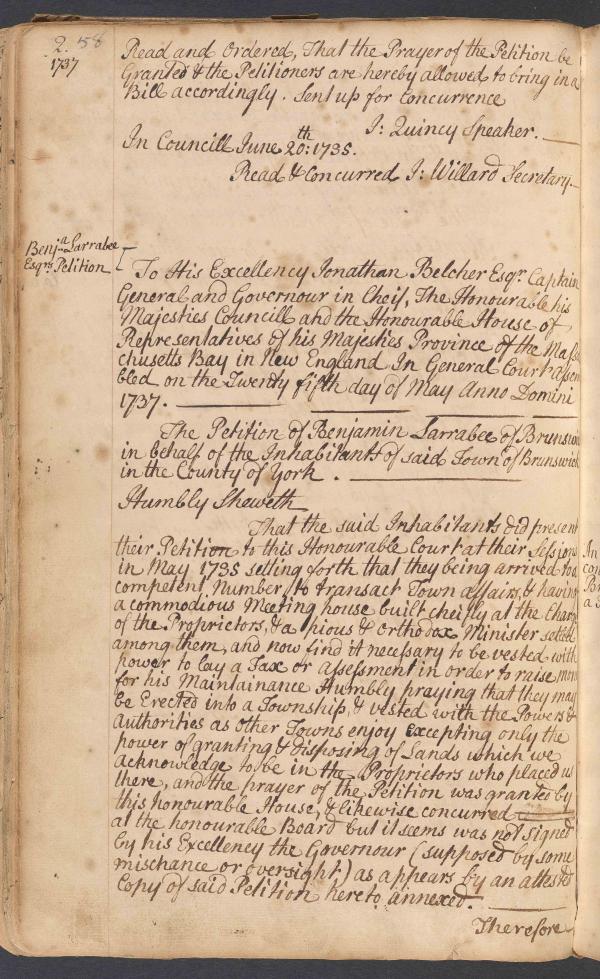 2. 58
1737
Read and Ordered, That the Prayer of the Petition be
Granted & the Petitioners are hereby allowed to bring in a
Bill accordingly. Sent up for Concurrence
J: Quincy Speaker.
In Councill June 20th: 1735.
Read & Concurred J: Willard Secretary.
Benja Larrabee
Esqrs Petition
To His Excellency Jonathan Belcher Esqr. Captain
General and Governour in Cheif, The Honourable his
Majesties Councill and the Honourable House of
Representatives of his Majesties Province of the Massa
chusetts Bay in New England In General Court assem
bled on the Twenty fifth day of May Anno Domini
1737.
The Petition of Benjamin Larrabee of Brunswick
in behalf of the Inhabitants of said Town of Brunswick
in the County of York.
Humbly Sheweth
That the said Inhabitants did present
their Petition to this Honourable Court at their Sessions
in May 1735 setting forth that they being arrived to a
competent Number to transact Town affairs, & having
a commodious Meeting house built cheifly at the Charge
of the Proprietors, & a pious & Orthodox Minister setled
among them, and now find it necessary to be vested with
power to lay a Tax or assessment in order to raise mony
for his Maintainance Humbly praying that they may
be Erected into a Township, & vested with the Powers &
Authorities as other Towns enjoy Excepting only the
power of granting & disposing of Lands which we
acknowledge to be in the Proprietors who placed us
there, and the prayer of the Petition was granted by
this honourable House, & likewise concurred
at the honourable Board but it seems was not signed
by his Excellency the Governour (supposed by some
mischance or oversight) as appears by an attested
Copy of said Petition hereto annexed.
Therefore